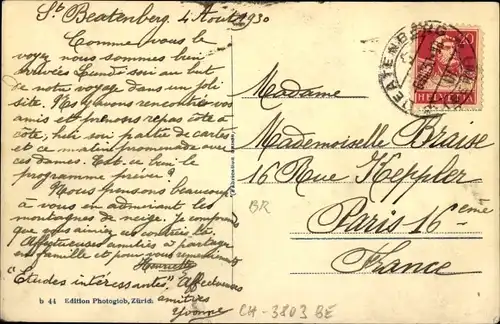 St Beatenberg, 4 Août 1930
Comme vous le
voyez nous sommes bien
arrivées Lundi soir au but
de notre voyage dans un joli
site. Nous y avons rencontré vos
amis et prenons repas côte à
côte; hier soir partie de cartes
et ce matin promenade avec
ces dames. Est-ce bien le
programme prévu ?
Nous pensons beaucoup
à vous en admirant les
montagnes de neige. Je comprends
que vous aimiez ces contrées là.
Affectueuses amitiés à partager
en famille et pour vous
Henriette
"Etudes intéressantes". Affectueuses
amitiés
Yvonne
b 44 Edition Photoglob, Zürich
Madame
Mademoiselle Braise
16 Rue Keppler
Paris 16eme
France
BR
CH-3803 BE
BEATENBERG
40
HELVETIA